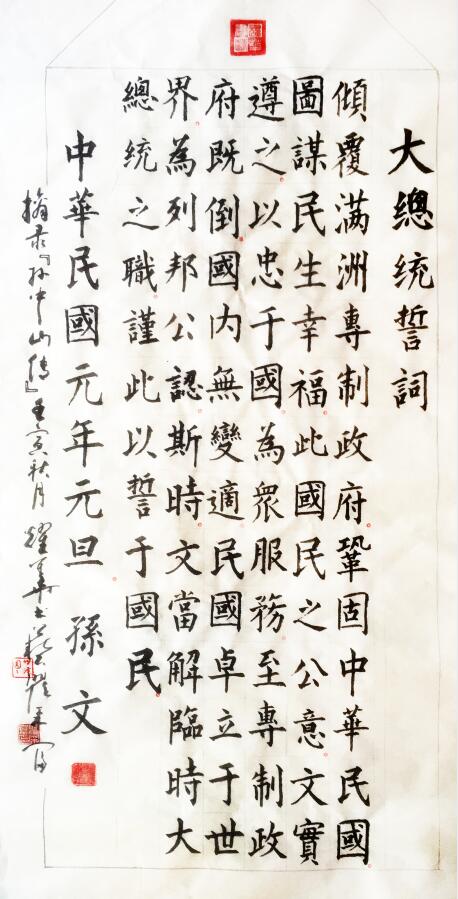 大總统誓詞
傾覆满洲專制政府鞏固中華民國
圖謀民生幸福此國民之公意文實
遵之以忠于國為眾服務至專制政
府既倒國内無變適民國卓立于世
界為列邦公認斯時文當解臨時大
總统之職謹此以誓于國民
中華民國元年元旦 孫文
摘录『孙中山传』壬寅秋月耀華书